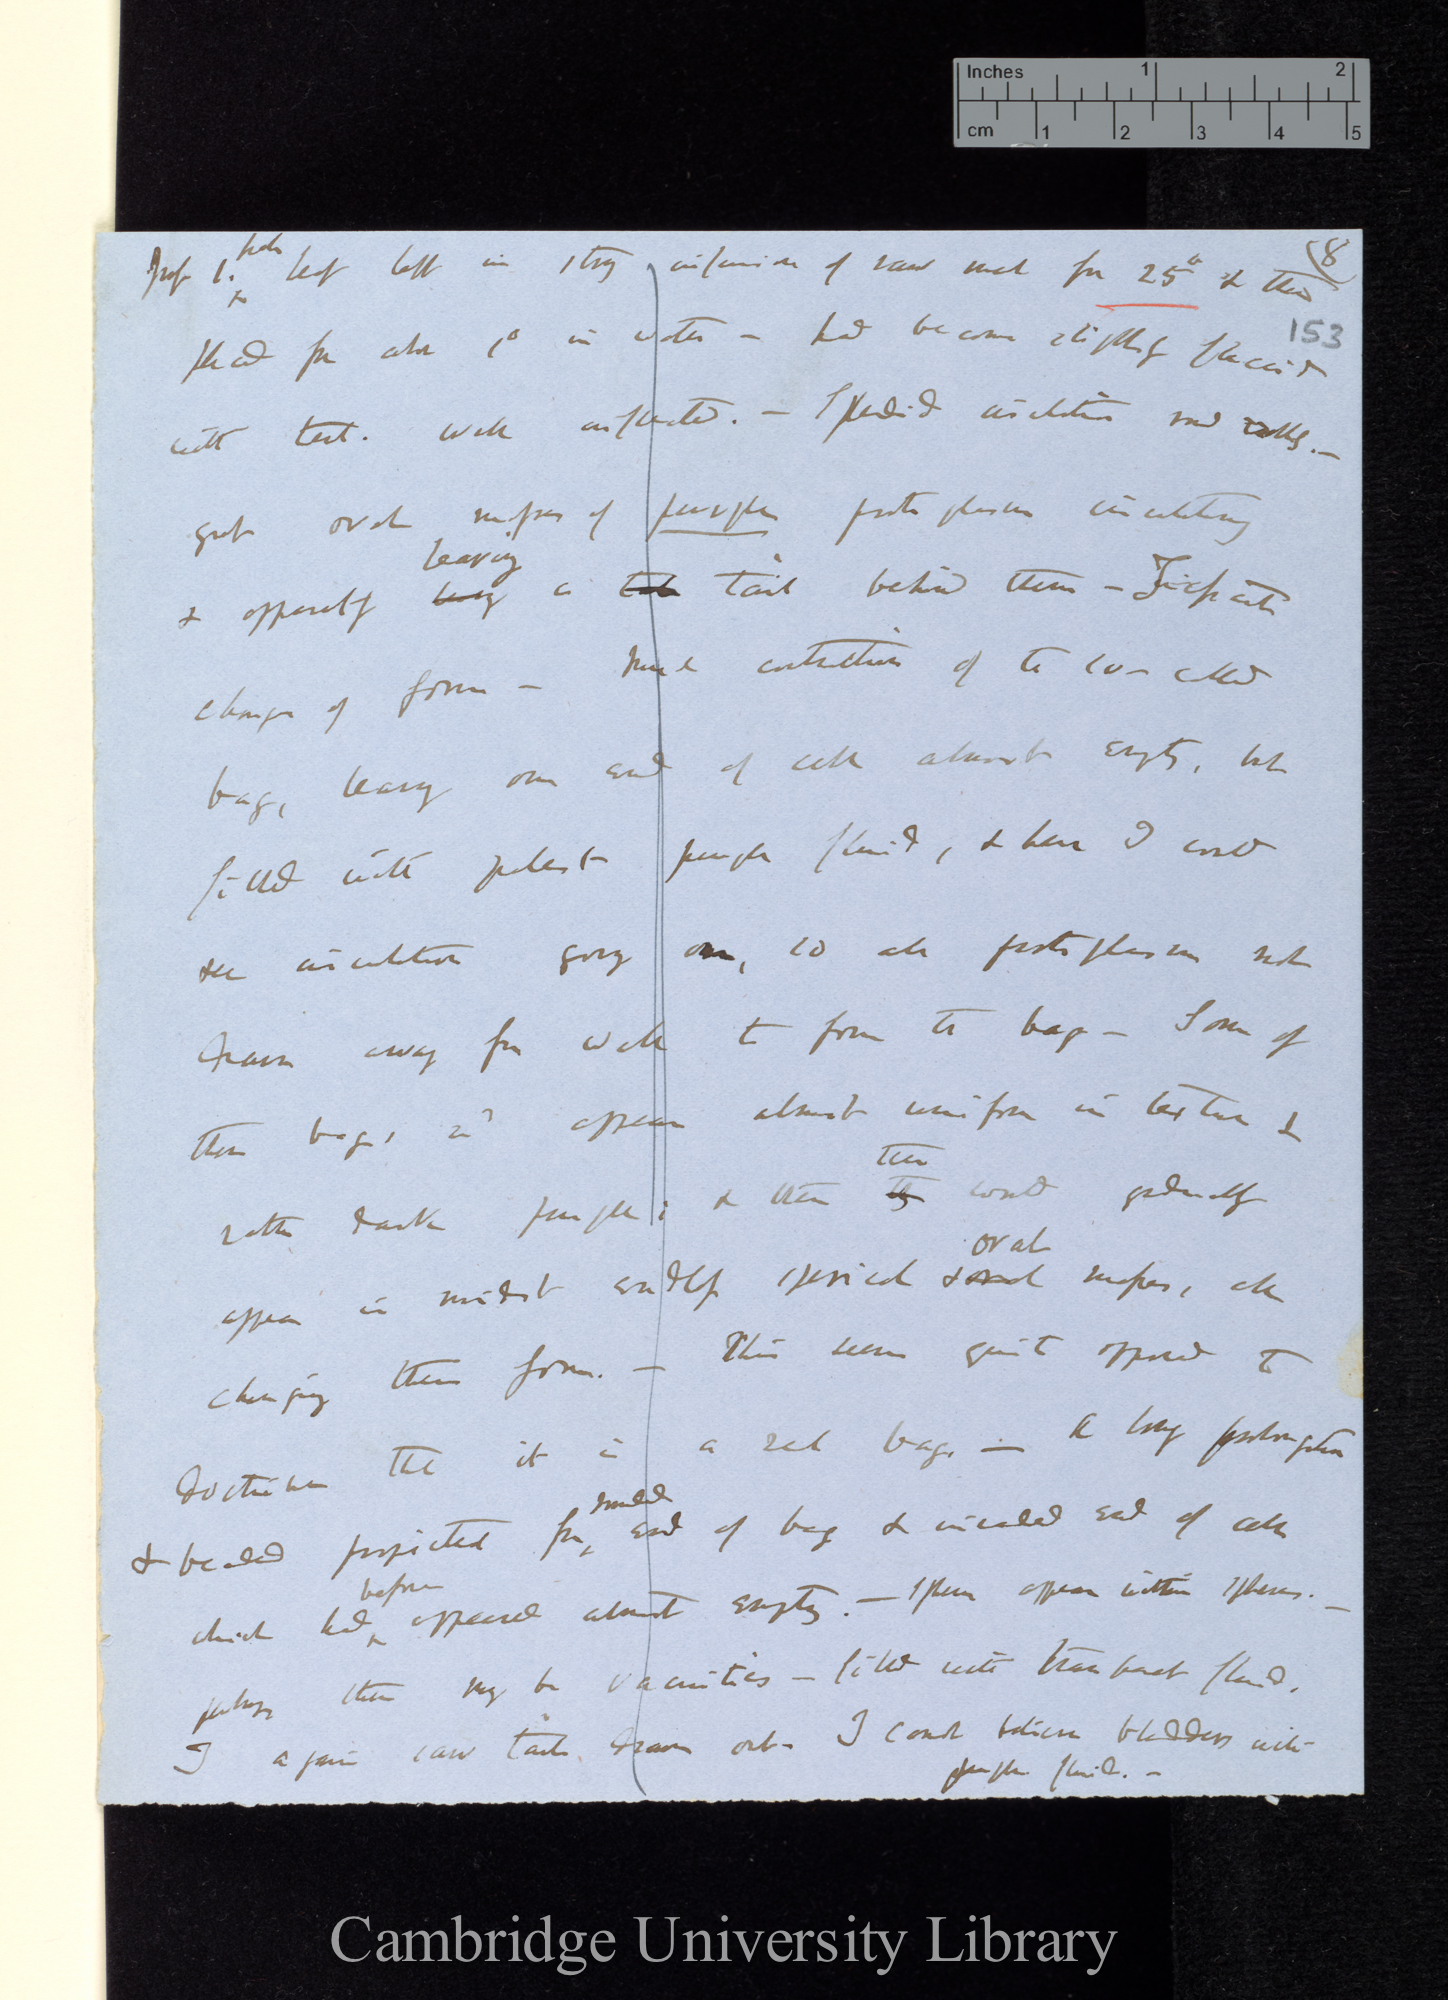 Inches 1 2
cm 1 2 3 4 5
(8
153
1. pale leaf left in strong infusion of raw meat for 25° & then
placed for about 1° in water — had become slightly flaccid
with tent. well inflected. — Splendid circulation round walls. —
great oval masses of purple protoplasm circulating
leaving
& apparently a tail behind them —
change of form — contraction of the so-called
bag, leaving one end of cell almost empty, but
filled with palest purple fluid, & here I could
see circulation going on, so all protoplasm not
drawn away from wall to form the bag — Some of
these bags, appear almost uniform in texture &
then
rather dark purple; & then could gradually
oval
appear in midst endless spherical & masses, all
changing their form. — This seems quite opposed to
doctrine that it is a real bag. — A long prolongation
rounded
& beaded projected from end of bag & invaded end of cell
before
which had appeared almost empty. — Spheres appear within spheres. —
perhaps these may be vacuities — filled with transparent fluid.
I again saw tails drawn out — I cannot believe bladders with
purple fluid. —
Cambridge University Library